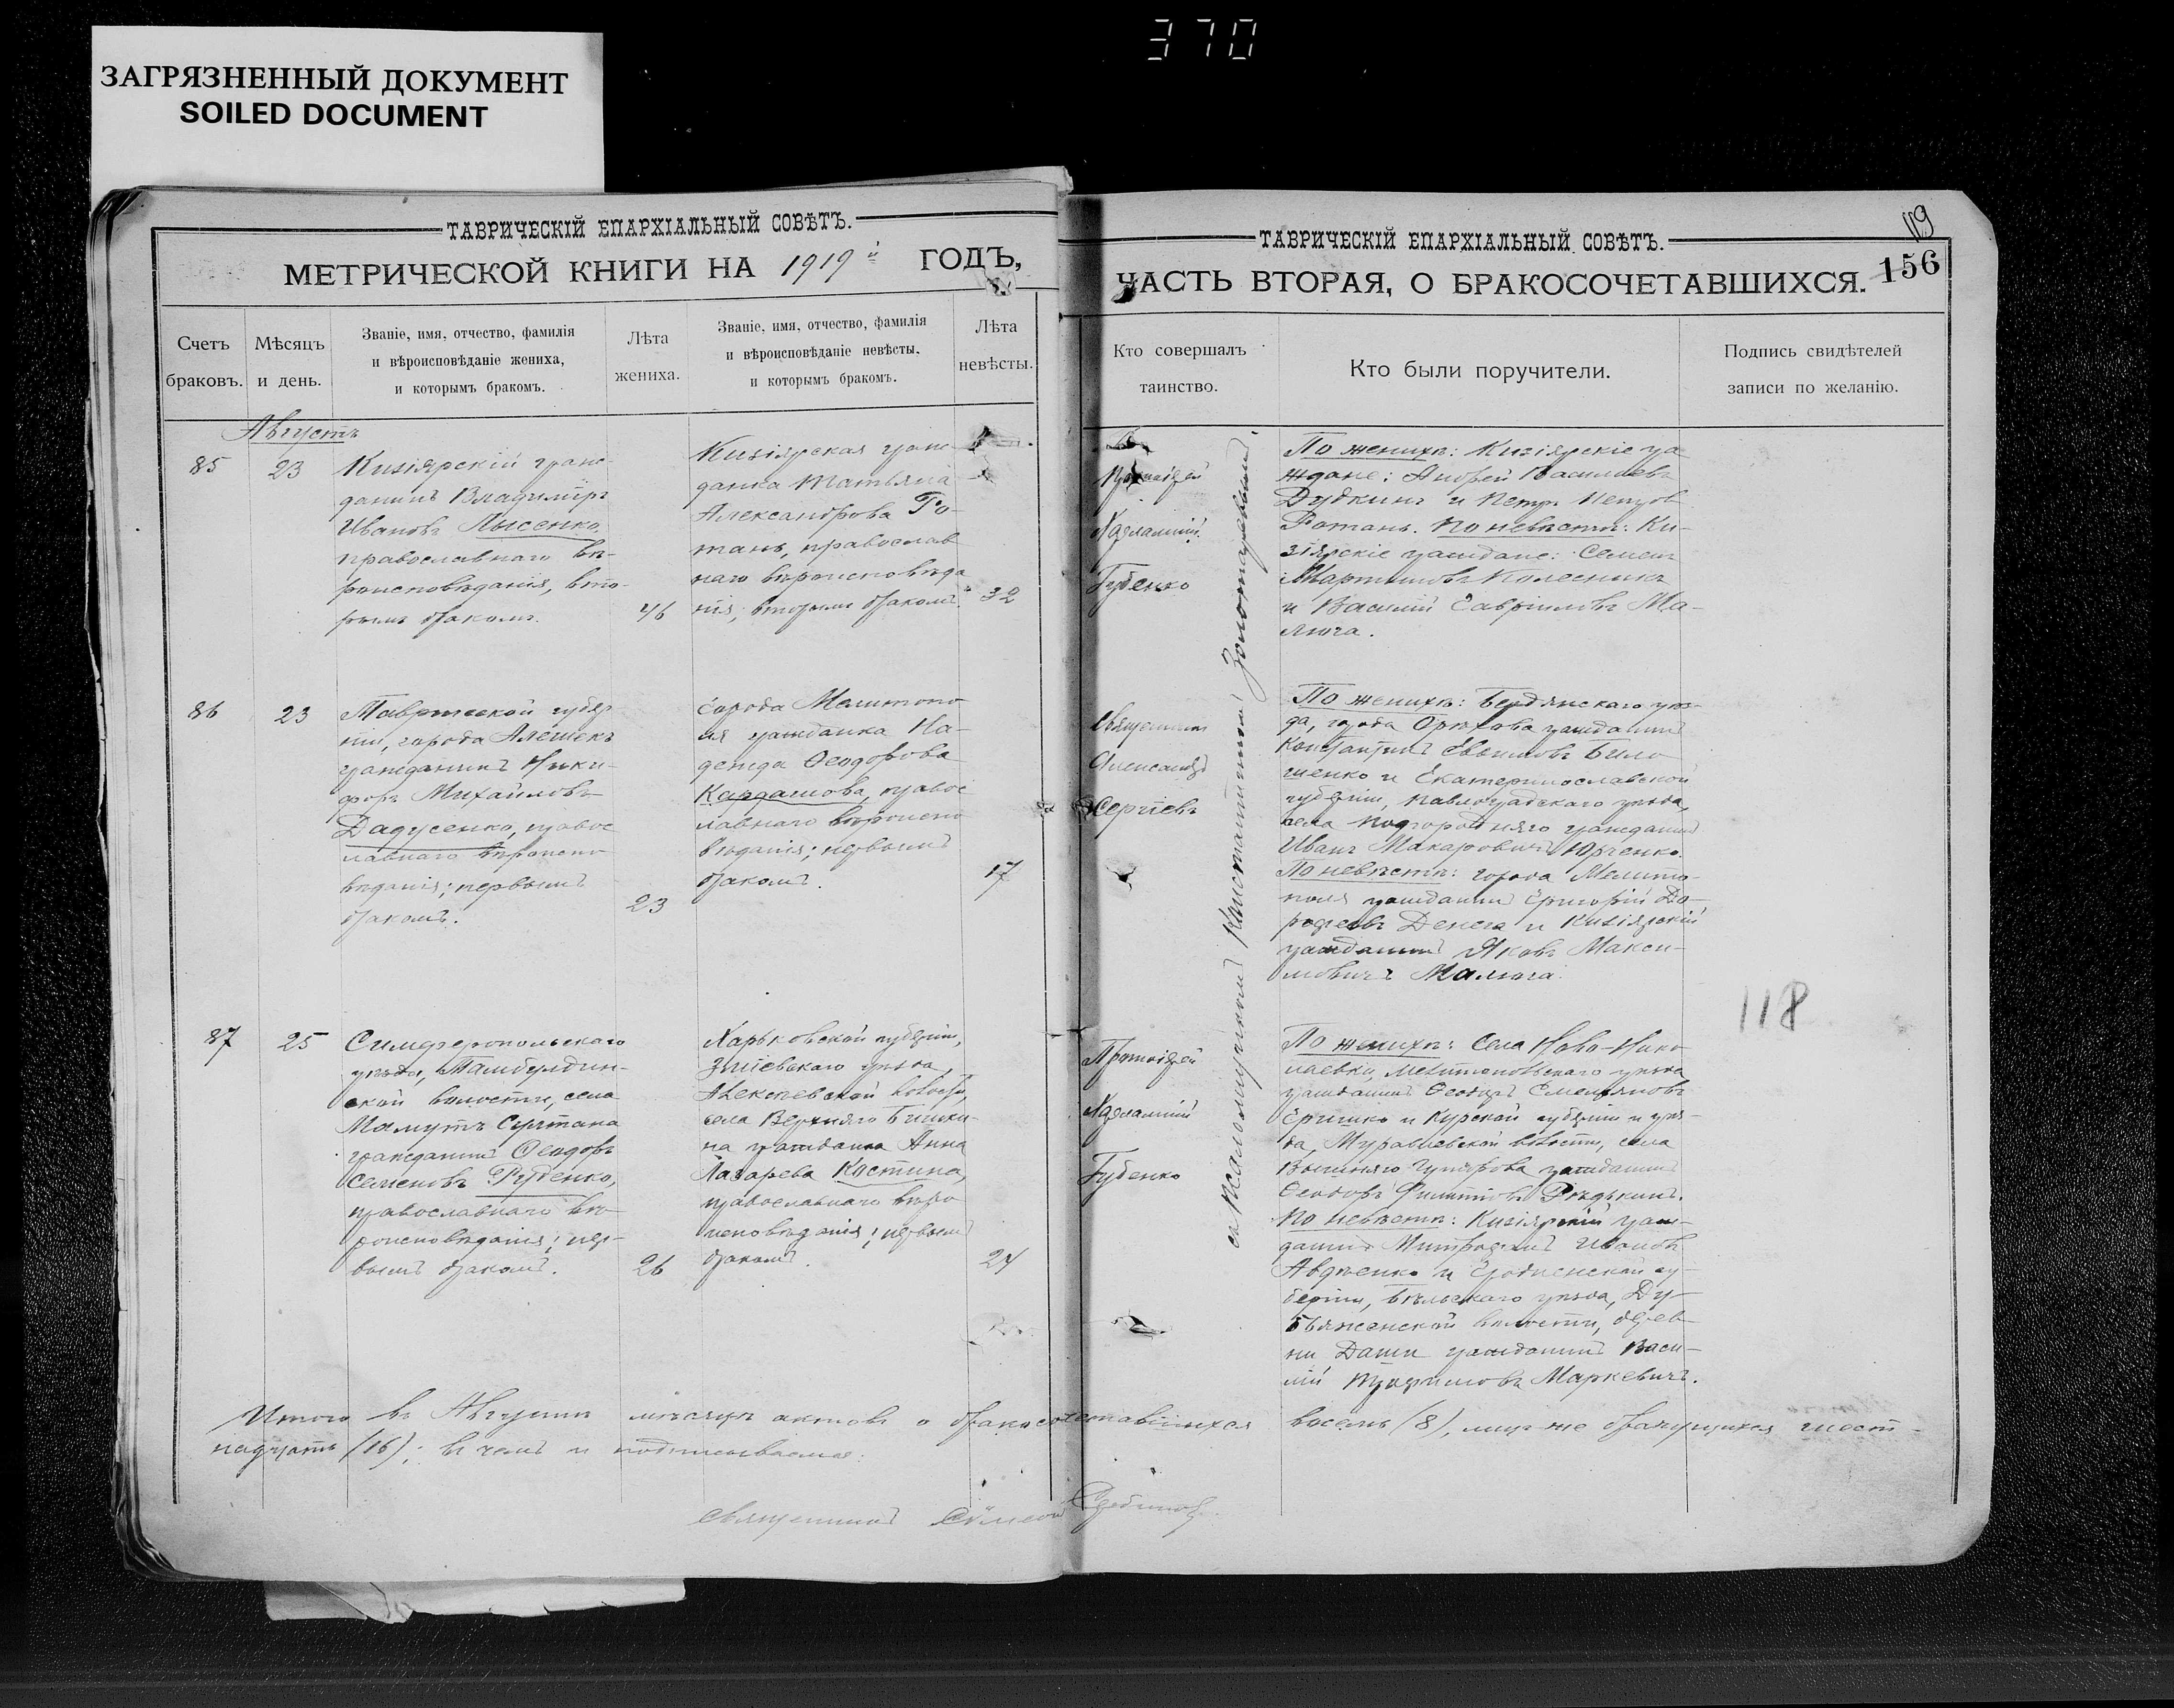 370
ЗАГРЯЗНЕННЫЙ ДОКУМЕНТ
SOILED DOCUMENT
ТАВРИЧЕСКІЙ ЕПАРХІАЛЬНЫЙ СОВѢТЪ.
МЕТРИЧЕСКОЙ КНИГИ НА 1919й ГОДЪ,
Счетъ
браковъ.
Мѣсяцъ
и день.
Званіе, имя, отчество, фамилія
и вѣроисповѣданіе жениха,
и которымъ бракомъ.
Лѣта
жениха.
Званіе, имя, отчество, фамилія
и вѣроисповѣданіе невѣсты,
и которымъ бракомъ.
Лѣта
невѣсты.
Августъ
85
23
Кизіярскій граж-
данинъ Владиміръ
Ивановъ Лысенко,
православнаго вѣ-
роисповѣданія, вто-
рымъ бракомъ.
46
Кизіярская граж-
данка Татьяна
Александрова Ро-
тань, православ
наго вѣроисповѣда
нія; вторымъ бракомъ.
32
86
23
Таврической губер
ніи, города Алешекъ
гражданинъ Ники-
форъ Михайловъ
Дадусенко, правос
лавнаго вѣроиспо
вѣданія; первымъ
бракомъ.
23
города Мелитопо
ля гражданка На-
дежда Ѳеодорова
Кардашова, правос
лавнаго вѣроиспо
вѣданія; первымъ
бракомъ.
17
87
25
Симферопольскаго
уѣзда,
ской волости, села
Мамутъ Султана
гражданинъ Ѳеодоръ
Семеновъ Руденко,
православнаго вѣ-
роисповѣданія; пер-
вымъ бракомъ.
26
Харьковской губерніи,
Зміевскаго уѣзда,
Алексѣевской волости,
села Верхняго Бишки-
на гражданка Анна
Лазарева Костина,
православнаго вѣро
исповѣданія; первымъ
бракомъ.
24
ТАВРИЧЕСКІЙ ЕПАРХІАЛЬНЫЙ СОВѢТЪ.
119
ЧАСТЬ ВТОРАЯ, О БРАКОСОЧЕТАВШИХСЯ.
156
Кто совершалъ
таинство.
Кто были поручители.
Подпись свидѣтелей
записи по желанію.
Протоіерей
Харлампій
Губенко
По женихѣ: Кизіярскіе гра
ждане: Андрей Васильевъ
Дудкинъ и Петръ Петровъ
Ротань. По невѣстѣ: Ки-
зіярскіе граждане: Семенъ
Мартиновъ Колесникъ
и Василій Гавріиловъ Ма-
люга.
Священникъ
Александръ
Сергіевъ
По женихѣ: Бердянскаго уѣз-
да, города Орѣхова гражданинъ
Константинъ
шенко и Екатеринославской
губерніи, Павлоградскаго уѣзда,
села Подгородняго гражданинъ
Иванъ Макаровичъ Юрченко.
По невѣстѣ: города Мелито-
поля гражданинъ Григорій До-
рофеевъ Денега и Кизіярскій
гражданинъ Яковъ Макси-
мовичъ Малюга.
118
Протоіерей
Харлампій
Губенко
съ псаломщикомъ Константиномъ Золотаревымъ.
По женихѣ: Села Ново-Нико
лаевки, Мелитопольскаго уѣзда
гражданинъ Ѳеодоръ Емельяновъ
и Курской губерніи и уѣз-
да, Муравлевской волости, села
Вышняго гражданинъ
Ѳеодоръ Филипповъ Рѣдькинъ.
По невѣстѣ: Кизіярскій граж-
данинъ Митрофанъ Ивановъ
Авдѣенко и Гродненской гу-
берніи, Бѣльскаго уѣзда, Ду-
бяженской волости, дерев-
ни Даши гражданинъ Васи-
лій Трофимовъ Маркевичъ.
Итого въ Августѣ мѣсяцѣ актовъ о бракосочетавшихся восемь (8), лицъ же брачущихся шест-
надцать (16); въ чемъ и подписываемся:
Священникъ Симеонъ